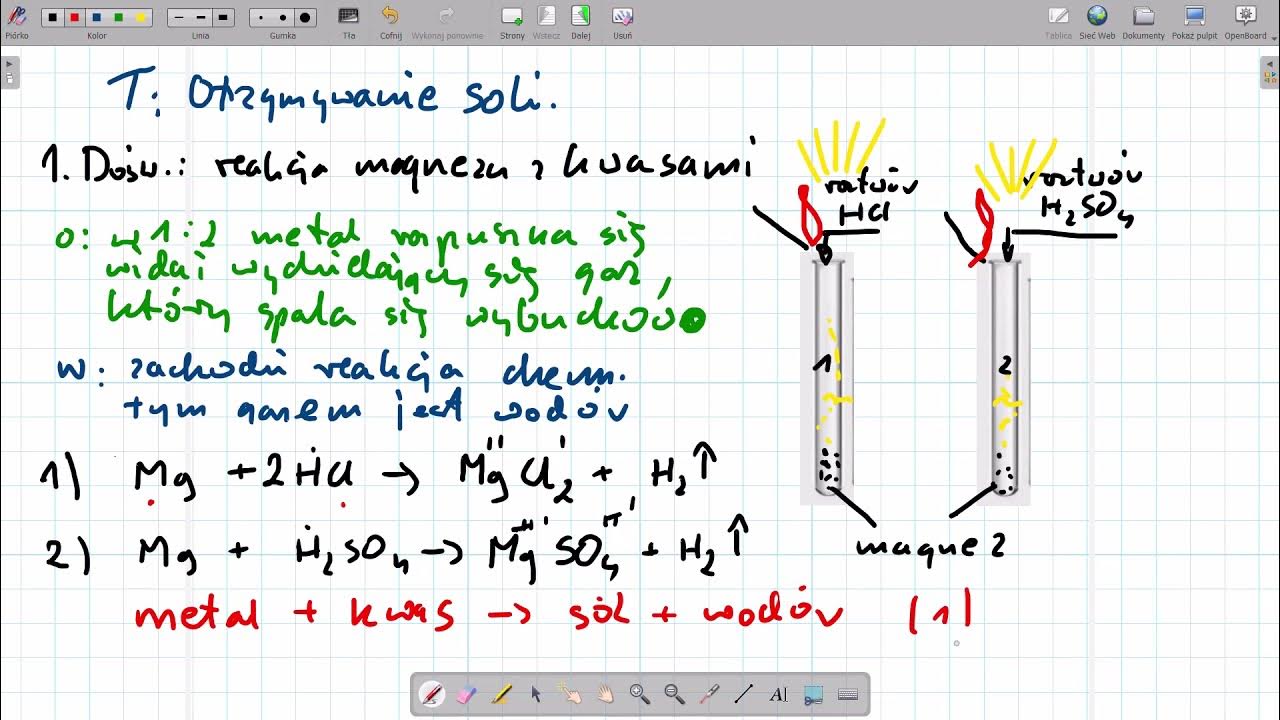 Piórko
Kolor
Linia
Gumka
Tła
Cofnij
Wykonaj ponownie
Strony
Wstecz
Dalej
Usuń
Tablica
Sieć Web
Dokumenty
Pokaż pulpit
OpenBoard
T: Otrzymywanie soli.
1. Dośw.: reakcja magnezu z kwasami
o: w 1 i 2 metal rozpuszcza się
widać wydzielający się gaz,
który spala się wybuchowo
w: zachodzi reakcja chem.
tym gazem jest wodór
1) Mg + 2HCl → MgCl₂ + H₂↑
2) Mg + H₂SO₄ → MgSO₄ + H₂↑
metal + kwas → sól + wodór (1)
roztwór
HCl
roztwór
H₂SO₄
1
2
magnez
AI